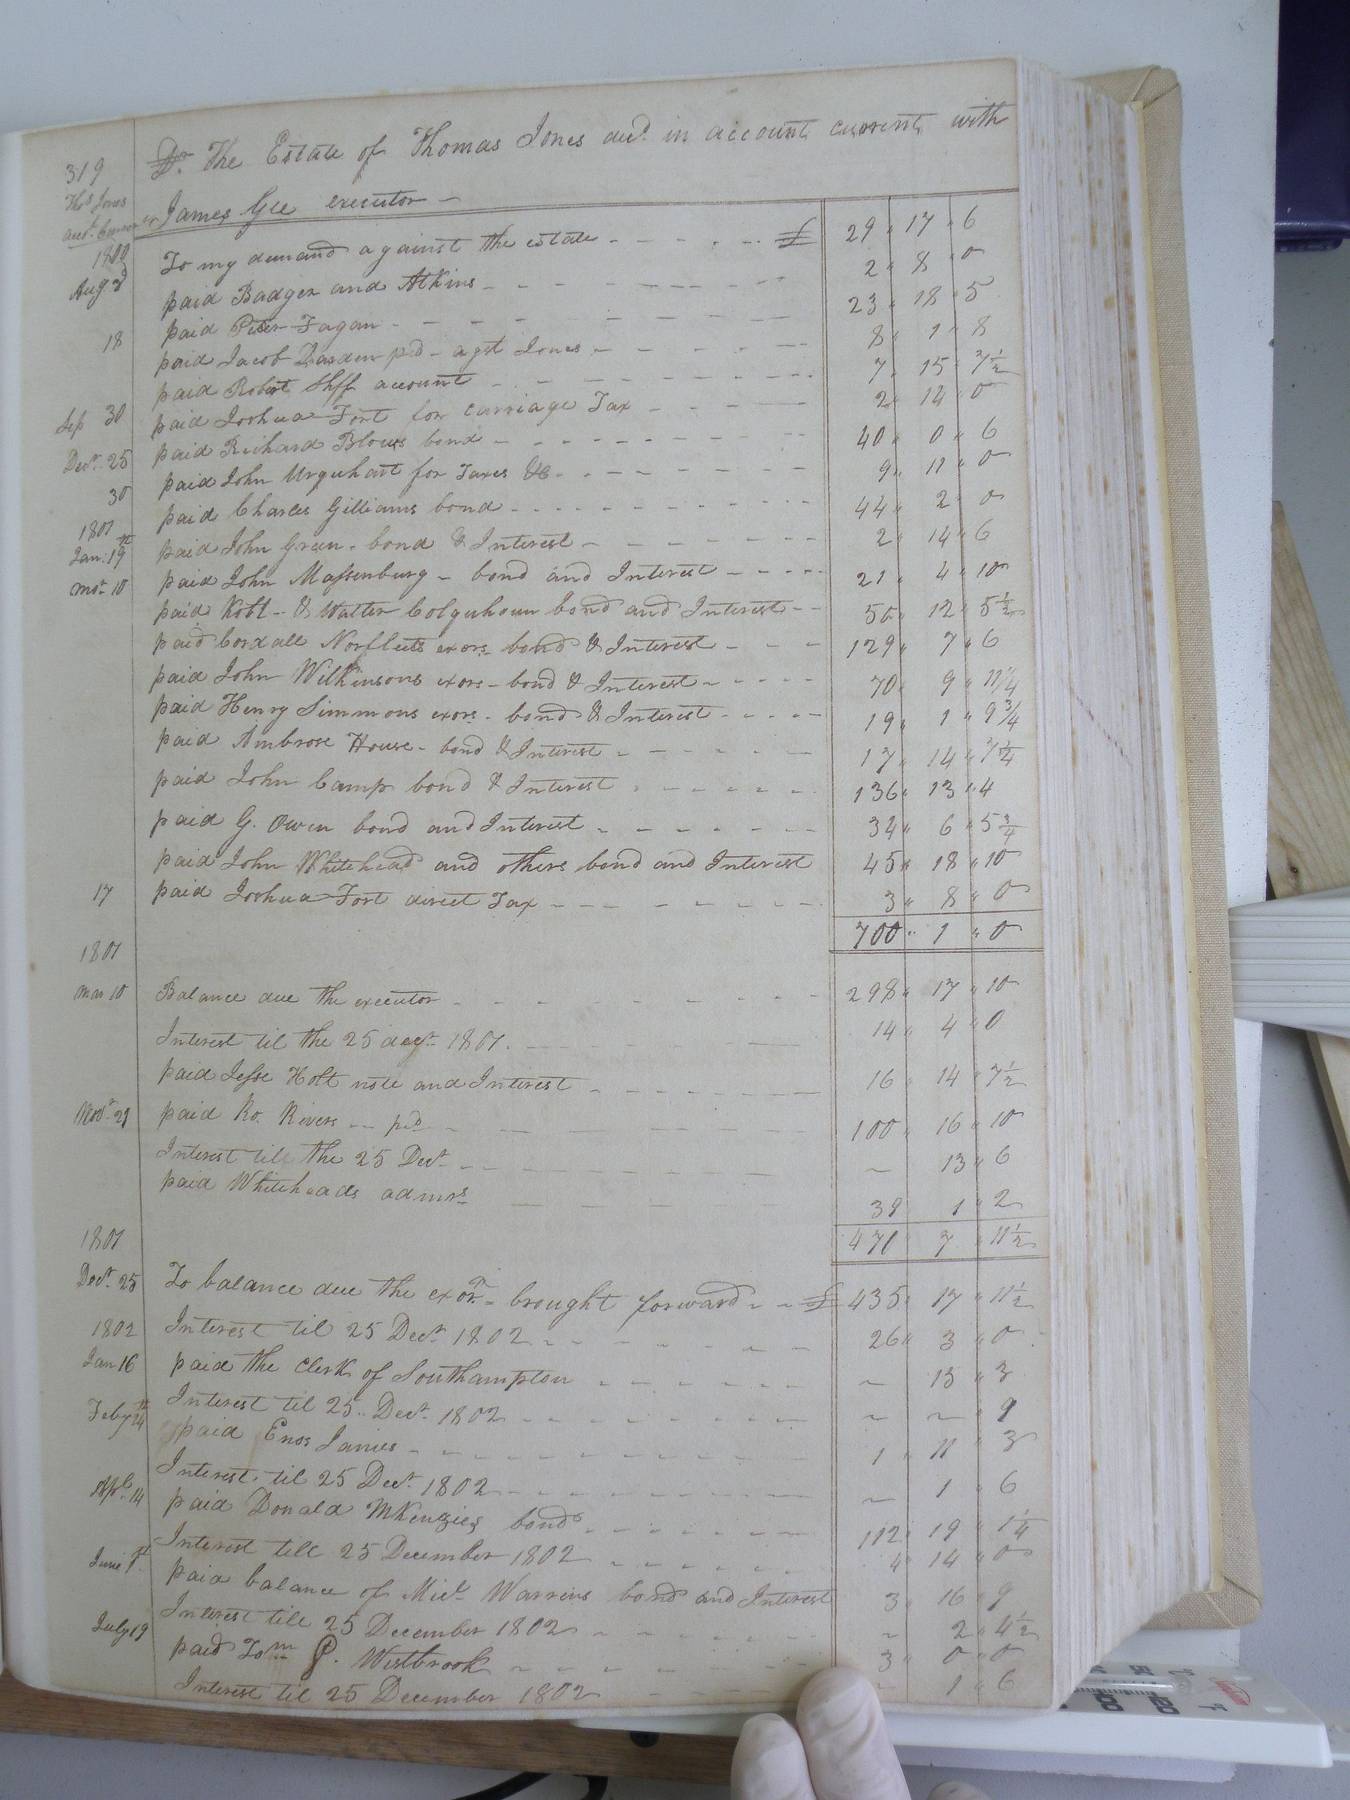 319 Dr. The Estate of Thomas Jones decd. in account current with
Thos Jones
acct. Current
James Gee executor
1800
Aug 2d To my demand against the estate £ 29 " 17 " 6
paid Badger and Atkins 2 " 8 " 0
paid Peter Fagan 23 " 18 " 5
18 paid Jacob Darden pd agst Jones 8 " 1 " 8
paid Robert Shff account 7 " 15 " 7½
Sep 30 paid Joshua Fort for carriage Tax 2 " 14 " 0
Decr. 25 paid Richard Blows bond 40 " 0 " 6
30 paid John Urquhart for Taxes &c 9 " 11 " 0
paid Charles Gilliams bond 44 " 2 " 0
1801
Jan. 19th paid John Green bond & Interest 2 " 14 " 6
Mar 10 paid John Massenburg bond and Interest 21 " 4 " 10
paid Robt. & Walter Colquhoun bond and Interest 50 " 12 " 5½
paid Cordall Norfleets exors bond & Interest 129 " 7 " 6
paid John Wilkinsons exors bond & Interest 70 " 9 " 11¼
paid Henry Simmons exors. bond & Interest 19 " 1 " 9¾
paid Ambrose House bond & Interest 17 " 14 " 7¼
paid John Camp bond & Interest 136 " 13 " 4
paid G. Owen bond and Interest 34 " 6 " 5¾
paid John Whitehead and others bond and Interest 45 " 18 " 10
17 paid Joshua Fort direct Tax 3 " 8 " 0
700 " 1 " 0
1801
Mar 10 Balance due the executor 298 " 17 " 10
Interest til the 25 decr. 1801. 14 " 4 " 0
paid Jesse Holt note and Interest 16 " 14 " 7½
Novr. 29 paid Ro. Rivers pd 100 " 16 " 10
Interest till the 25 Decr. 13 " 6
paid Whiteheads admrs 39 1 " 2
470 7 " 11½
1801
Decr. 25 To balance due the exor. brought forward £ 435 " 17 " 11½
Interest til 25 Decr. 1802 26 " 3 " 0
1802
Jan 16 paid the Clerk of Southampton 15 " 3
Interest til 25. Decr. 1802 9
Feby 24th paid Enos James 1 " 11 " 3
Interest til 25 Decr. 1802 1 " 6
Apl. 14 paid Donald McKenzies bond 112 " 19 " 1¼
Interest till 25 December 1802 4 " 14 " 0
June 1st paid balance of Micl. Warrins bond and Interest 3 " 16 " 9
Interest till 25 December 1802 2 " 4½
July 19 paid Tom P. Westbrook 3 " 0 " 0
Interest til 25 December 1802 1 " 6